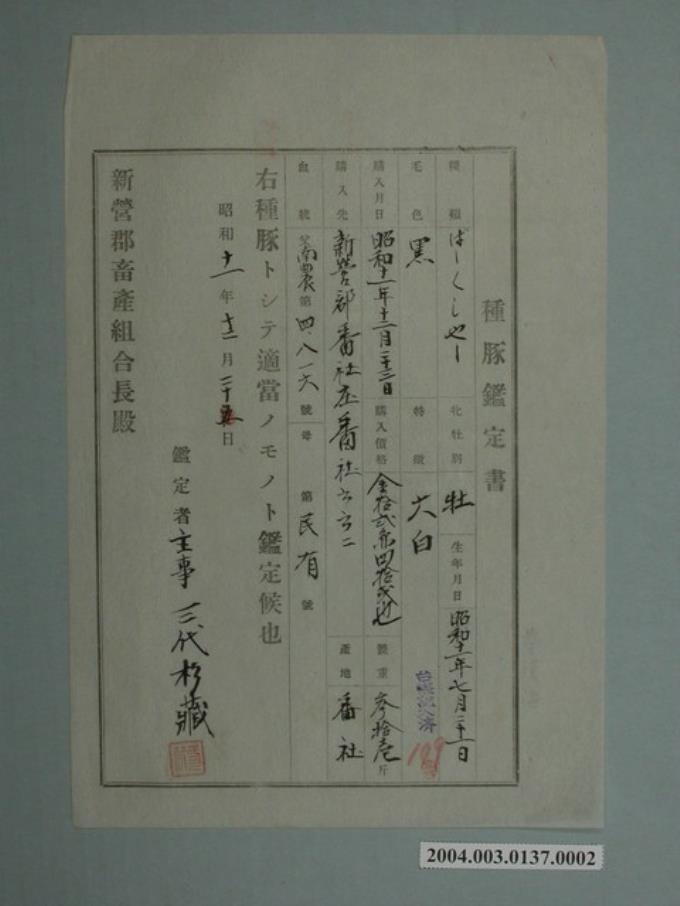 種豚鑑定書
種類 ばーくしやー 牝牡別 牡 生年月日 昭和十一年七月二十一日
毛色 黒 特徴 六白
台帳記入濟
199
購入月日 昭和十一年十二月二十三日 購入價格 金拾弐円四拾弐也 體重 参拾壱斤
購入先 新營郡番社庄番社六六二 產地 番社
血統 父 南農第四、八一六號 母 第民有號
右種豚トシテ適當ノモノト鑑定候也
昭和十一年十二月二十五日
鑑定者 主事 三代杉藏
新營郡畜產組合長殿
2004.003.0137.0002